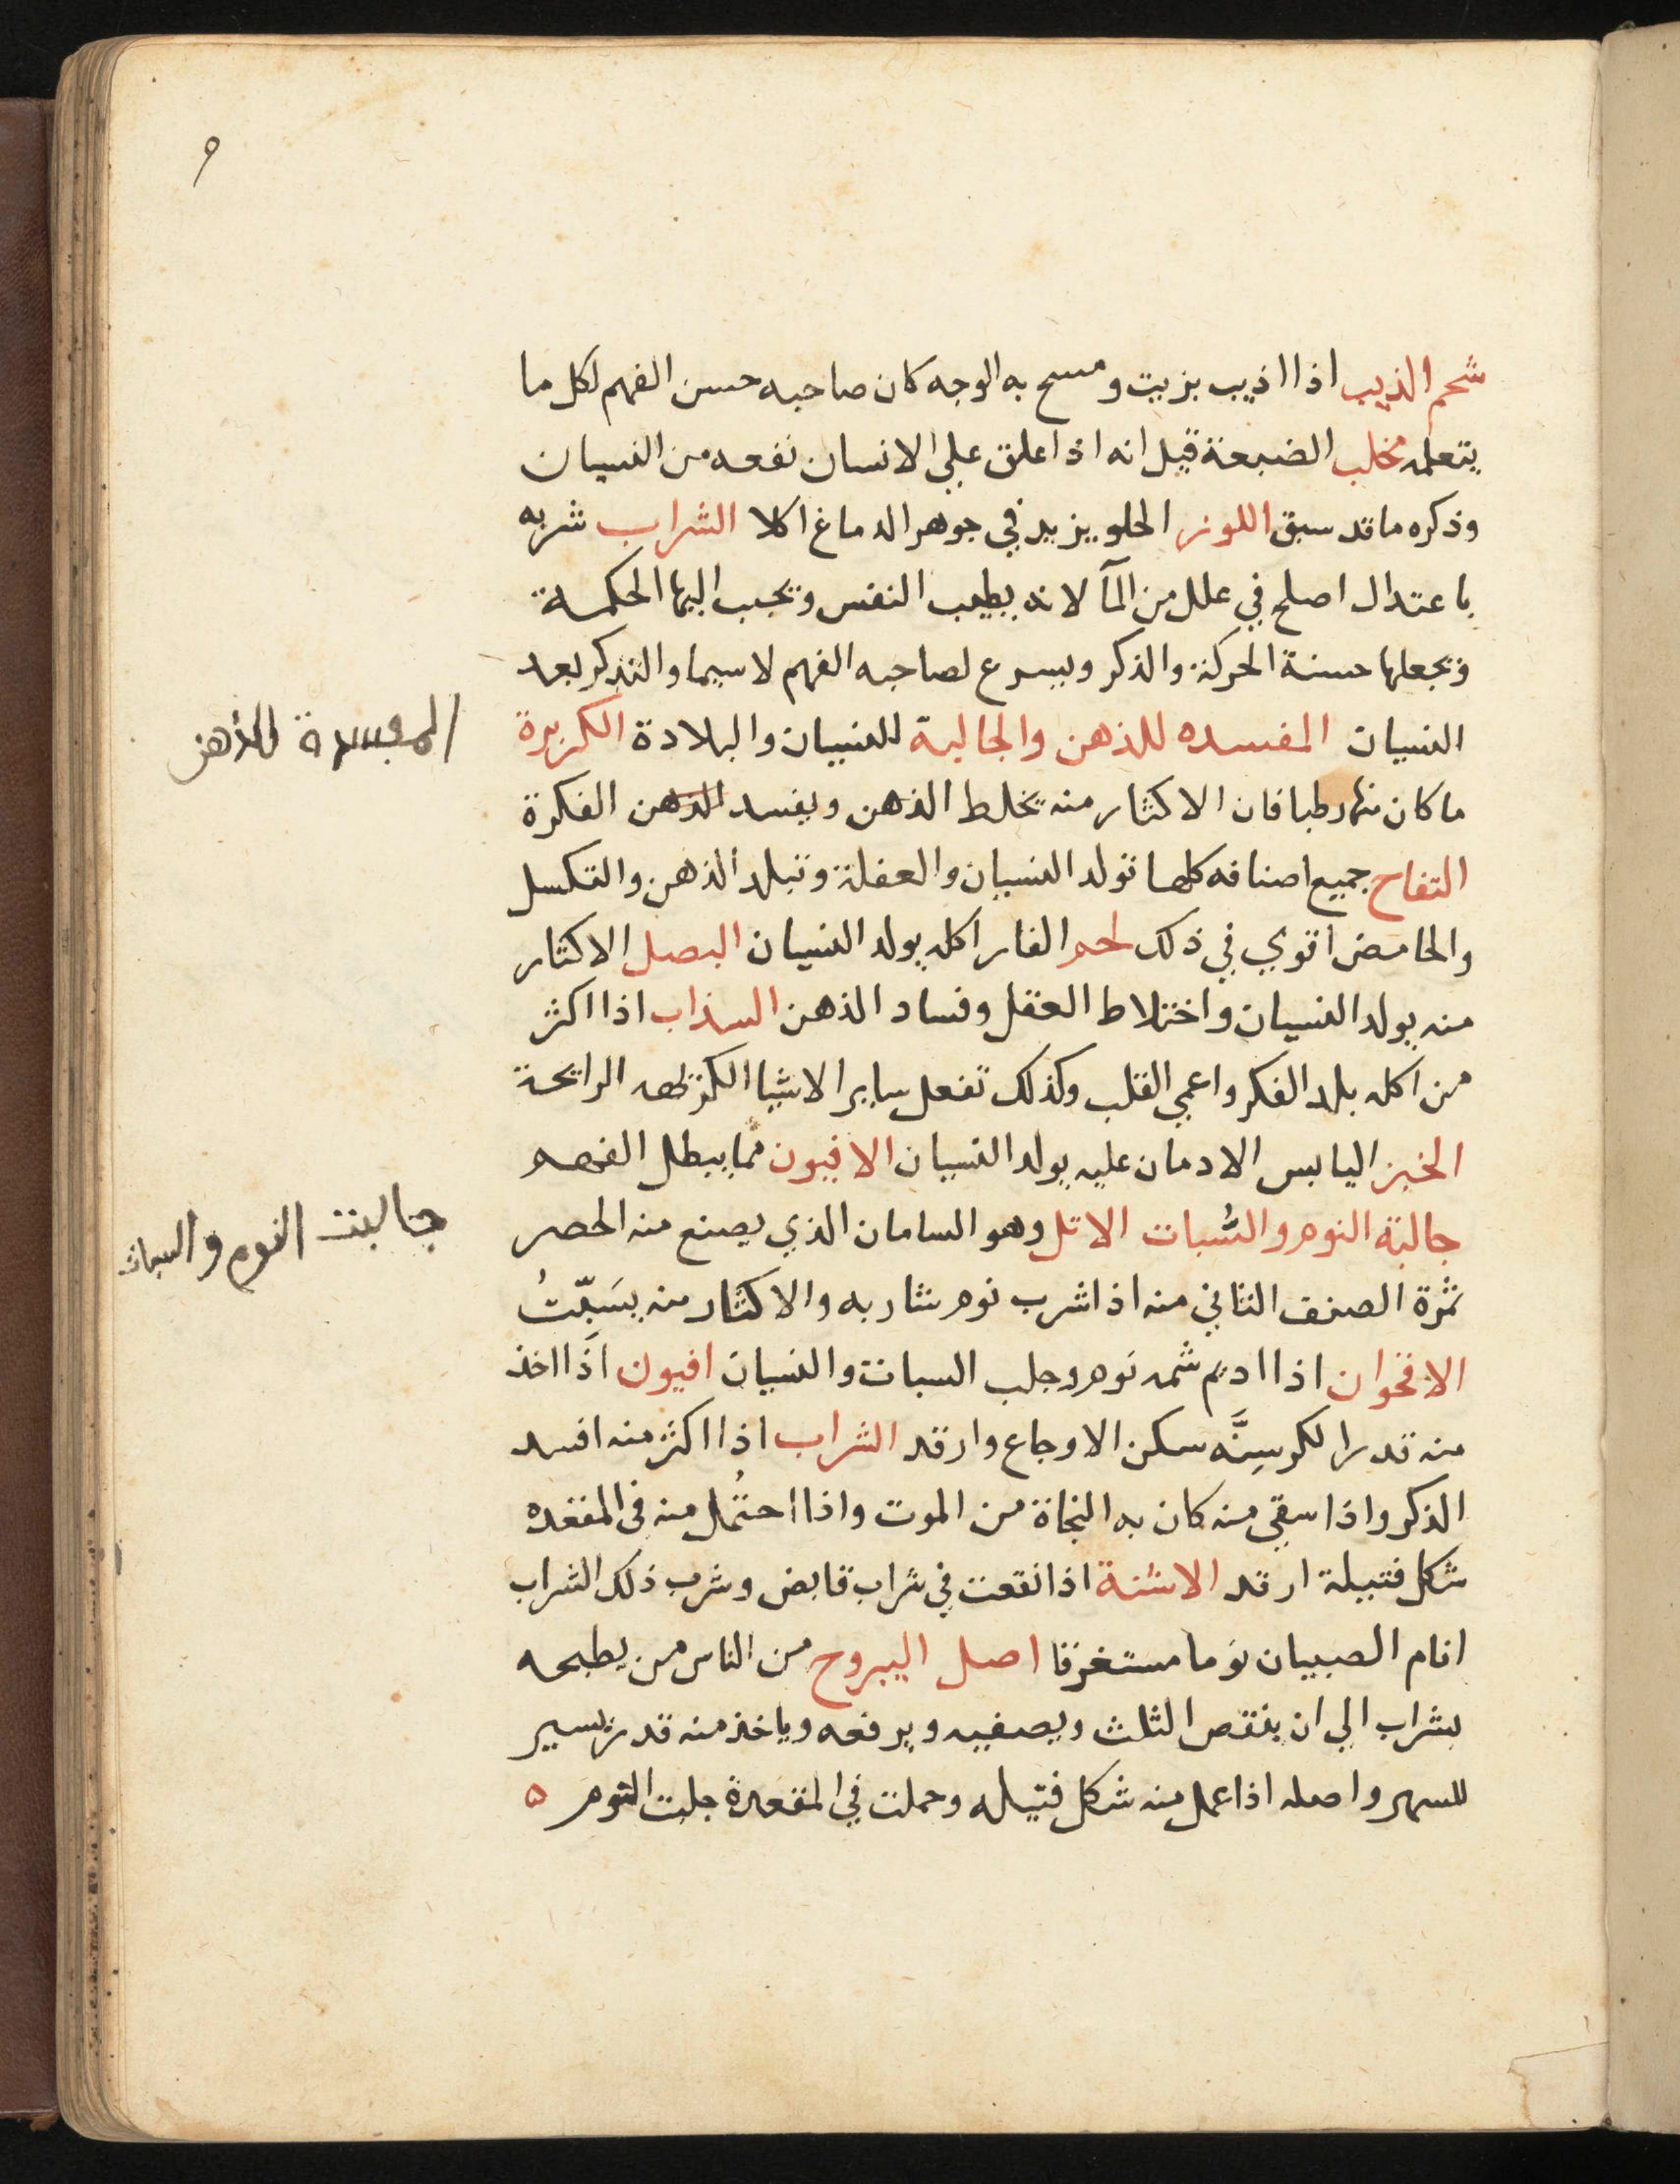 ٩
شحم الذيب اذا اذيب بزيت ومسح به الوجه كان صاحبه حسن الفهم لكل ما
يتعلمه مخلب الضبعة قيل انه اذا علق علي الانسان نفعه من النسيان
وذكره ما قد سبق اللوز الحلو يزيد في جوهر الدماغ اكلا الشراب شربه
باعتدال اصلح في علل من المآ لانه يطيب النفس ويحبب اليها الحكمة
ويجعلها حسنة الحركة والذكر ويسرع لصاحبه الفهم لا سيما والتذكر بعد
النسيان المفسده للذهن والجالبة للنسيان والبلادة الكزبرة
المفسدة للذهن
ما كان منها رطبا فان الاكثار منه يخلط الذهن ويفسد الذهن الفكرة
التفاح جميع اصنافه كلها تولد النسيان والغفلة وتبلد الذهن والتكسل
والحامض اقوي في ذلك لحم الفار اكله يولد النسيان البصل الاكثار
منه يولد النسيان واختلاط العقل وفساد الذهن السذاب اذا اكثر
من اكله بلد الفكر واعمي القلب وكذلك تفعل ساير الاشيا الكريهه الرايحة
الخبز اليابس الادمان عليه يولد النسيان الافيون مما يبطل الفهم
جالبة النوم والسُّبات الاتل وهو السامان الذي يصنع منه الحصر
جالبت النوم والسبات
ثمرة الصنف الثاني منه اذا شرب نوم شاربه والاكثار منه يسَبّتُ
الاقحوان اذا اديم شمه نوم وجلب السبات والنسيان افيون اذا اخذ
منه قدر الكرسِنَّه سكن الاوجاع وارقد الشراب اذا اكثر منه افسد
الذكر واذا سقي منه كان به النجاة من الموت واذا احتُمل منه فى المقعده
شكل فتيلة ارقد الاشنة اذا نقعت في شراب قابض وشرب ذلك الشراب
انام الصبيان نوما مستغرقا اصل اليبروح من الناس من يطبخه
بشراب الي ان ينقص الثلث ويصفيه ويرفعه وياخذ منه قدر يسير
للسهر واصله اذا عمل منه شكل فتيله وحملت في المقعدة جلبت النوم ه